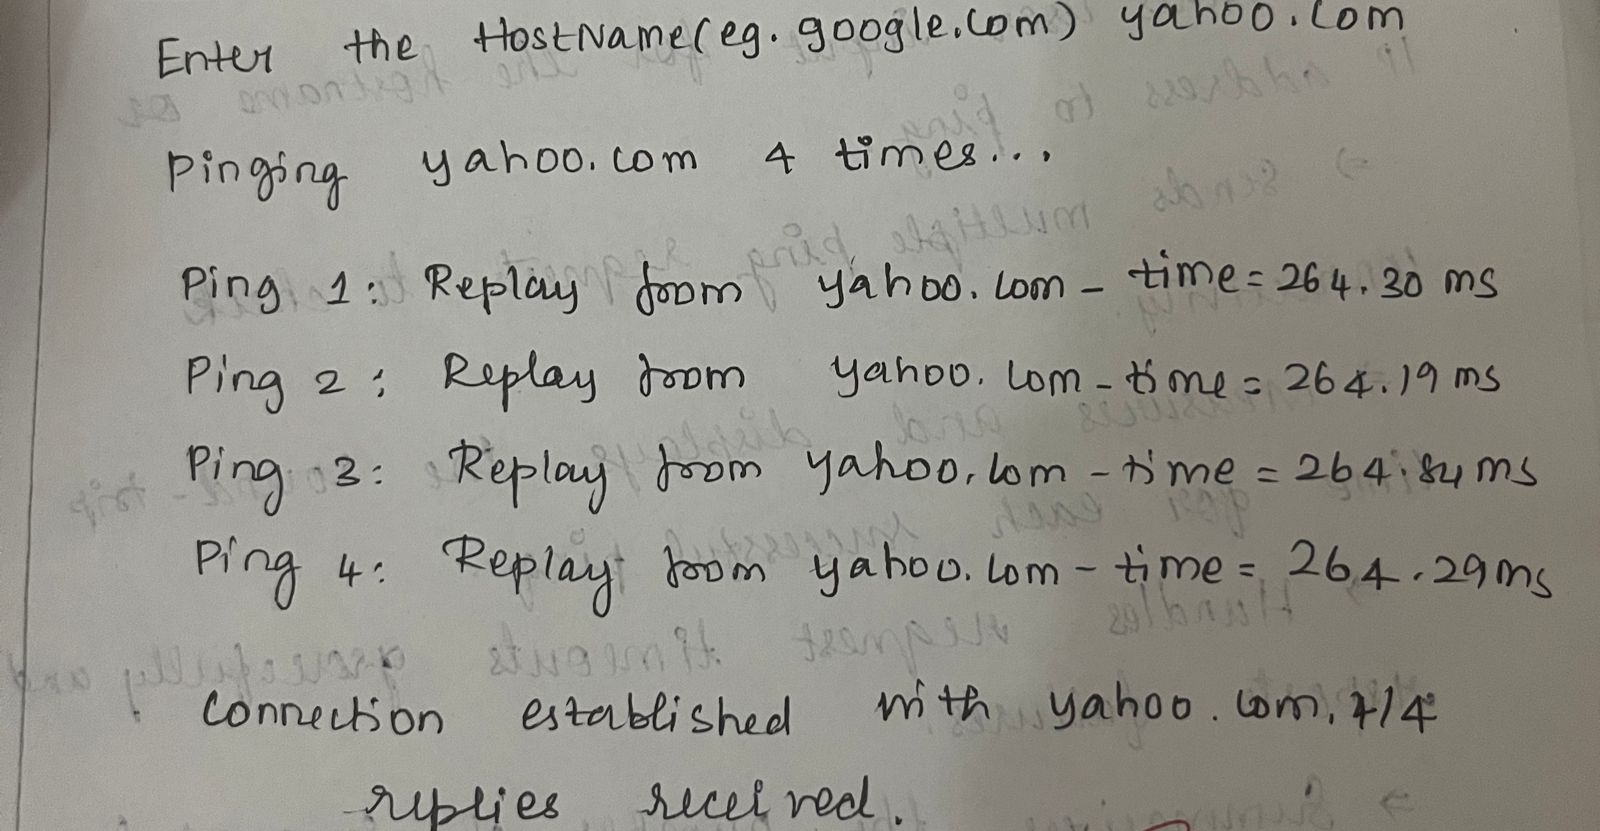 Enter the HostName(eg. google.com) yahoo.com
Pinging yahoo.com 4 times...
Ping 1: Replay from yahoo.com - time = 264.30 ms
Ping 2: Replay from yahoo.com - time = 264.19 ms
Ping 3: Replay from yahoo.com - time = 264.84 ms
Ping 4: Replay from yahoo.com - time = 264.29 ms
Connection established with yahoo.com. 4/4
replies received.